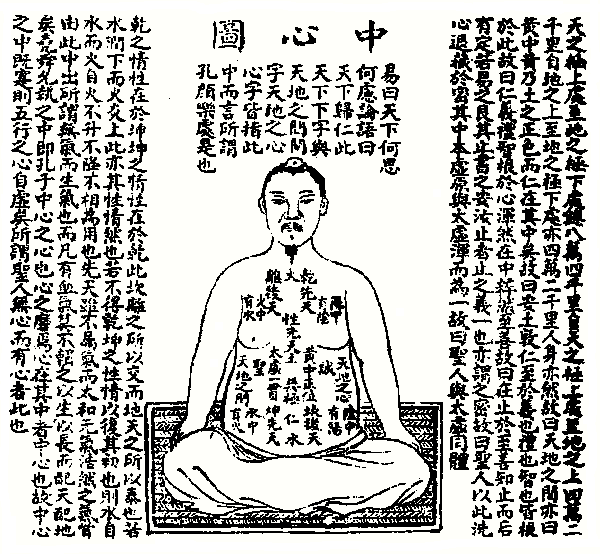 中心圖
天之極上處至地之極下處錄八萬四千里自天之極上處至地之上四萬二
千里自地之上至地之極下處亦四萬二千里人身亦然故曰天地之間亦曰
黃中黃乃土之正色而仁在其中矣故曰安土敦仁至於義也禮也智也皆根
於此故曰仁義禮智根於心渾然在中粹然至善故曰在止於至善知止而后
有定若易之艮其止書之安汝止者止之義一也亦謂之密故曰聖人以此洗
心退藏於密其中本虛原與太虛渾而為一故曰聖人與太虛同體
易曰天下何思
何慮論語曰
天下歸仁此
天下下字與
天地之間間
字天地之心
心字皆指此
中而言所謂
孔顏樂處是也
乾先天
火
離後天
陽中有陰
火中有水
性先天土
天地之心
誠
黃中正位
太虛一竅
聖
天地之間
坎後天
仁
水
坤先天
陰中有陽
水中有火
乾之情性在於坤坤之情性在於乾此坎離之所以交而地天之所以泰也若
水潤下而火炎上此亦其性情然也若不得乾坤之性情以復其初也則水自
水而火自火不升不降不相為用也先天雖不屬氣而太和元氣浩然之氣嘗
由此中出所謂無氣而生氣也而凡有血氣莫不之以生以長而配天配地
矣堯舜允執之中即孔子中心之心也心之焉心在其中者中心也故中心
之中既塞則五行之心自虛矣所謂聖人無心而有心者此也